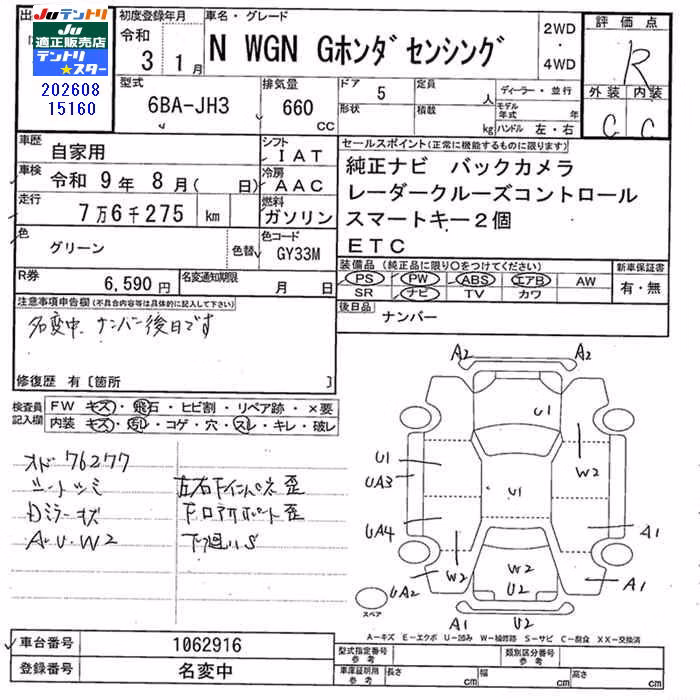 Juテントリ
Ju
適正販売店
テントリ
★スター
202608
15160
初度登録年月
令和
3 1月
車名・グレード
N WGN Gホンダセンシング
2WD
・
4WD
評価点
R
外装 内装
C C
型式
6BA-JH3
排気量
660
CC
ドア
5
形状
定員
人
積載
kg
ディーラー・並行
モデル年式 年式
ハンドル 左・右
車歴
自家用
シフト
IAT
車検
令和 9年 8月( 日)
冷房
AAC
走行
7万6千275 km
燃料
ガソリン
色
グリーン
色替
色コード
GY33M
R券
6,590円
名変通知期限
月 日
セールスポイント(正常に機能するものに限ります)
純正ナビ バックカメラ
レーダークルーズコントロール
スマートキー2個
ETC
装備品(純正品に限り〇をつけてください)
PS PW ABS エアB AW
SR ナビ TV カワ
新車保証書
有・無
後日品
ナンバー
注意事項申告欄(不具合内容等は具体的に記入して下さい)
名変中、ナンバー後日です
修復歴 有〔箇所 〕
検査員
記入欄
FW キズ・飛石・ヒビ割・リペア跡・×要
内装 キズ・汚レ・コゲ・穴・スレ・キレ・破レ
オド 76277
シートシミ
Dミラーキズ
A.U.W2
左右下インパネ歪
下回りS
A2 A2
U1
U1
W2
UA3
U1
UA4
A1
W2
W2
UA2
U2
A1
スペア
A1 U2
A-キズ E-エクボ U-凹み W-補修跡 S-サビ C-腐食 XX-交換済
車台番号
1062916
登録番号
名変中
型式指定番号
参考
類別区分番号
参考
車庫証明用
参考
長さ
cm
幅
cm
高さ
cm